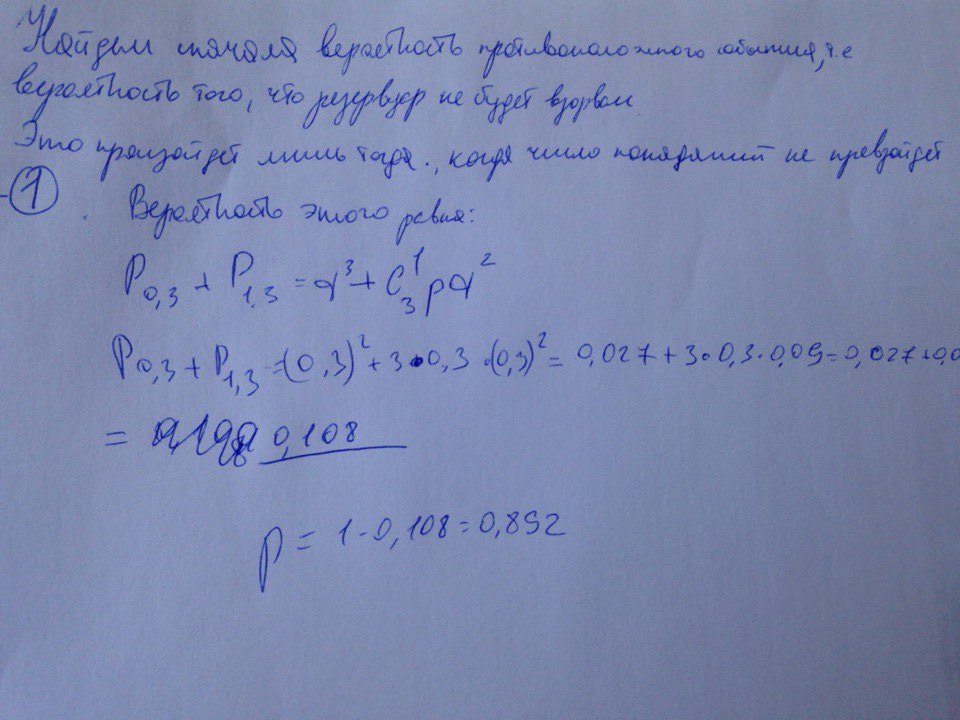 Найдем сначала вероятность противоположного события, т.е
вероятность того, что резервуар не будет взорван
Это произойдет лишь тогда, когда число попаданий не превзойдет
1
Вероятность этого равна:
P0,3 + P1,3 = q³ + C₃¹pq²
P0,3 + P1,3 = (0,3)² + 3·0,3·(0,3)² = 0,027 + 3·0,3·0,09 = 0,027 + 0,0
= 0,108
p = 1 - 0,108 = 0,892